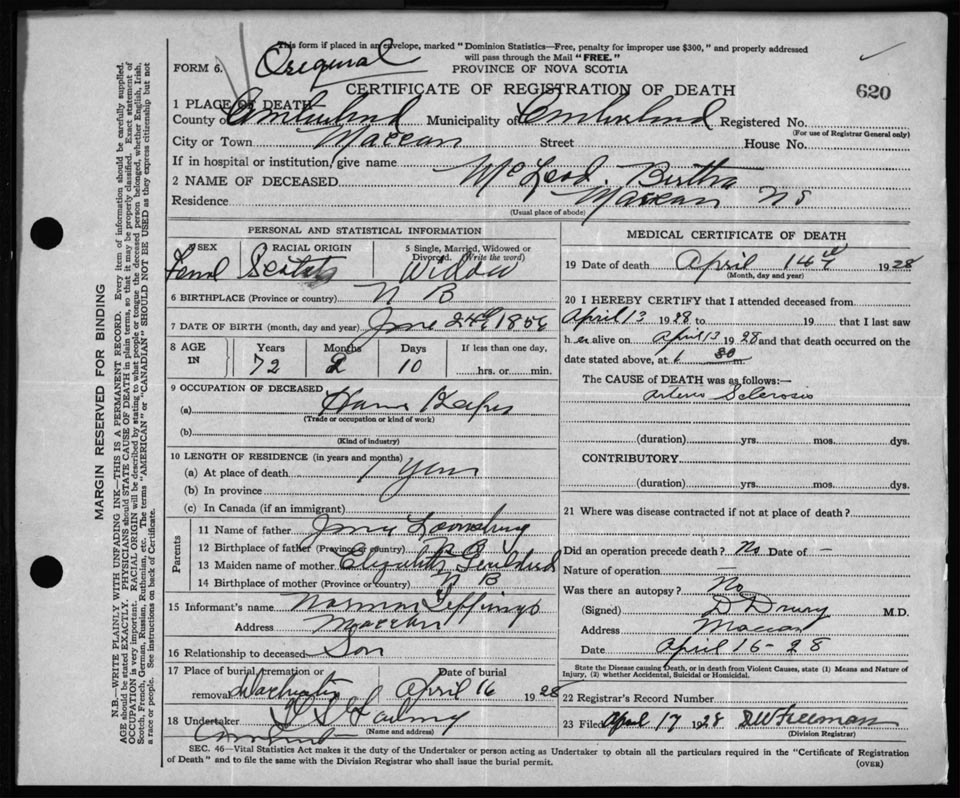 This form if placed in an envelope, marked "Dominion Statistics—Free, penalty for improper use $300," and properly addressed
will pass through the Mail "FREE."
FORM 6. Original PROVINCE OF NOVA SCOTIA
CERTIFICATE OF REGISTRATION OF DEATH 620
1 PLACE OF DEATH
County of Cumberland Municipality of Cumberland Registered No.
(For use of Registrar General only)
City or Town Maccan Street House No.
If in hospital or institution, give name
2 NAME OF DECEASED McLeod Bertha
Residence Maccan N S
(Usual place of abode)
PERSONAL AND STATISTICAL INFORMATION
SEX RACIAL ORIGIN 5 Single, Married, Widowed or
Divorced. (Write the word)
Feml Scotch Widow
6 BIRTHPLACE (Province or country) N B
7 DATE OF BIRTH (month, day and year) 1856
8 AGE IN Years Months Days If less than one day,
72 2 10 hrs. or min.
9 OCCUPATION OF DECEASED
(a) House Keeper
(Trade or occupation or kind of work)
(b)
(Kind of industry)
10 LENGTH OF RESIDENCE (in years and months)
(a) At place of death 1 year
(b) In province
(c) In Canada (if an immigrant)
Parents
11 Name of father
12 Birthplace of father (Province or country) N B
13 Maiden name of mother Elizabeth
14 Birthplace of mother (Province or country) N B
15 Informant's name Norman
Address Maccan
16 Relationship to deceased Son
17 Place of burial, cremation or Date of burial
removal April 16 1928
18 Undertaker
(Name and address)
MEDICAL CERTIFICATE OF DEATH
19 Date of death April 14th 1928
(Month, day and year)
20 I HEREBY CERTIFY that I attended deceased from
April 13 1928 to 19 that I last saw
her alive on April 13 1928 and that death occurred on the
date stated above, at 1 30 m.
The CAUSE OF DEATH was as follows:—
Arterio Sclerosis
(duration) yrs. mos. dys.
CONTRIBUTORY
(duration) yrs. mos. dys.
21 Where was disease contracted if not at place of death?
Did an operation precede death? No Date of —
Nature of operation —
Was there an autopsy? No
(Signed) D Drury M.D.
Address Maccan
Date April 16-28
State the Disease causing Death, or in death from Violent Causes, state (1) Means and Nature of
Injury, (2) whether Accidental, Suicidal or Homicidal.
22 Registrar's Record Number
23 Filed April 17 1928 DW Freeman
(Division Registrar)
SEC. 46—Vital Statistics Act makes it the duty of the Undertaker or person acting as Undertaker to obtain all the particulars required in the "Certificate of Registration
of Death" and to file the same with the Division Registrar who shall issue the burial permit. (OVER)
MARGIN RESERVED FOR BINDING
N.B.—WRITE PLAINLY WITH UNFADING INK—THIS IS A PERMANENT RECORD. Every item of information should be carefully supplied.
AGE should be stated EXACTLY. PHYSICIANS should STATE CAUSE OF DEATH in plain terms, so that it may be properly classified. Exact statement of
OCCUPATION is very important. RACIAL ORIGIN will be described by stating to what people or tongue the deceased person belonged, whether English, Irish,
Scotch, French, German, Russian, Ruthenian, etc. The terms "AMERICAN" or "CANADIAN" SHOULD NOT BE USED as they express citizenship but not
a race or people. See instructions on back of Certificate.